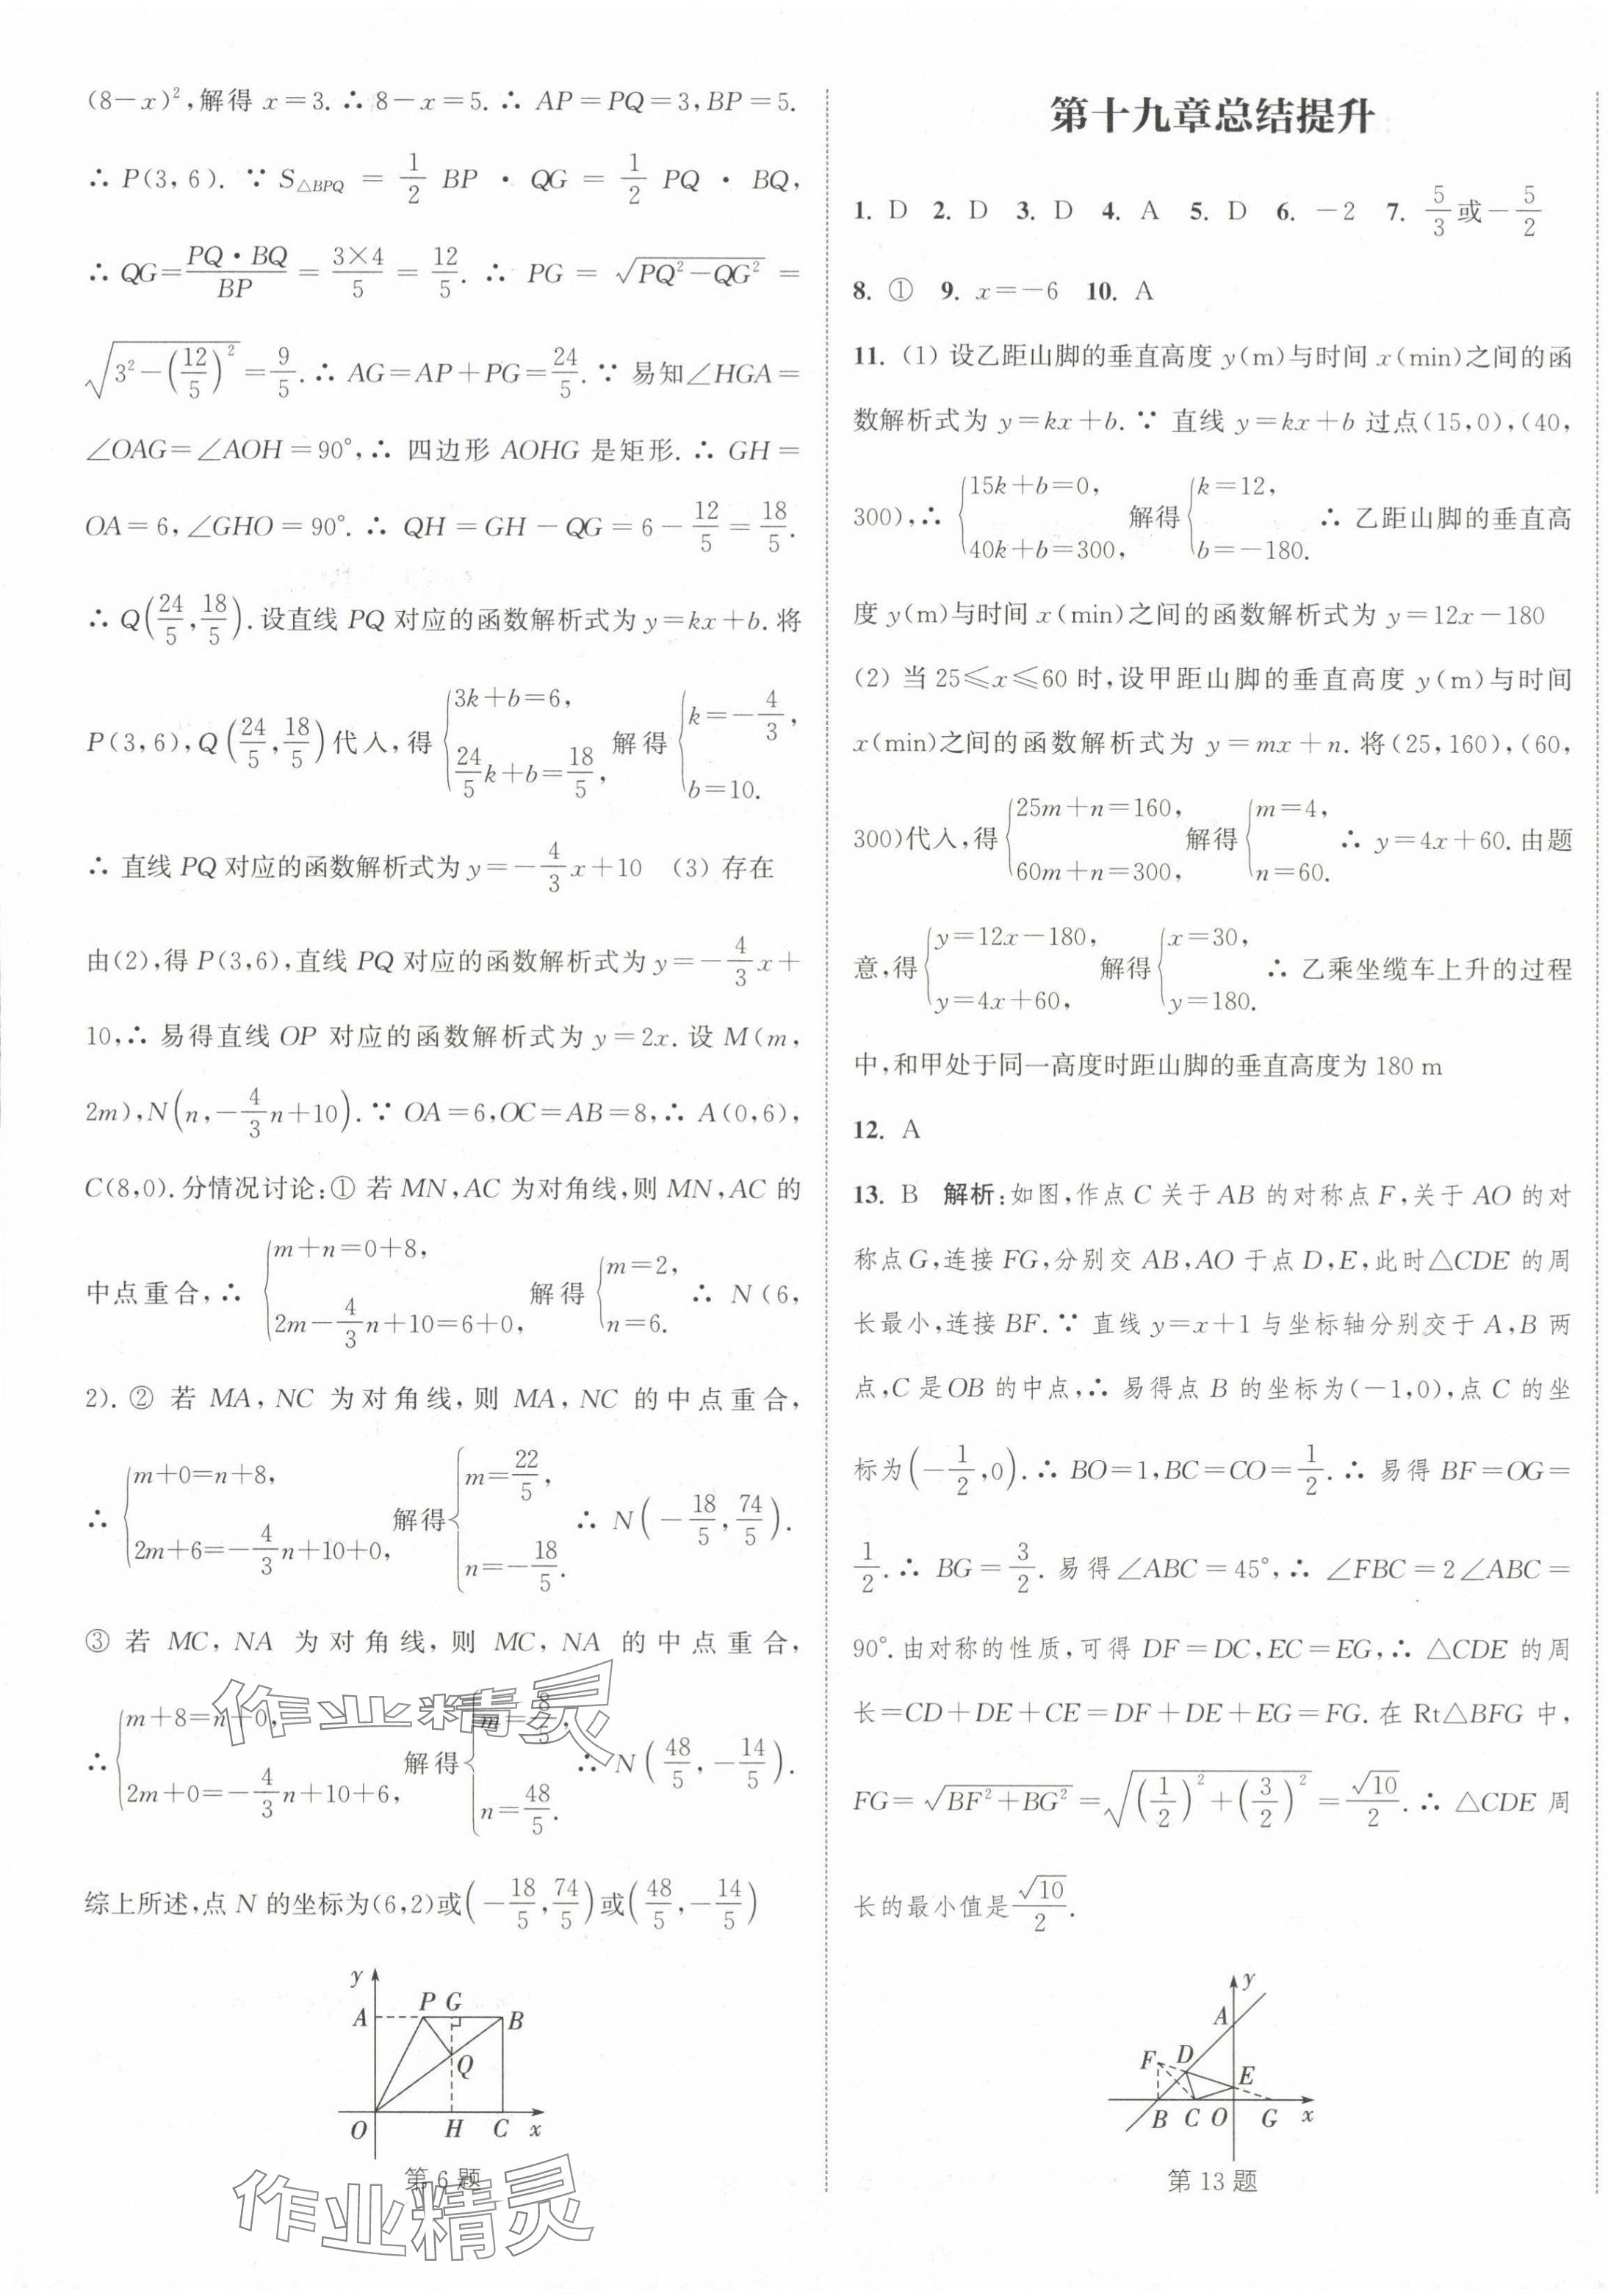 (8−x)²,解得 x=3.∴ 8−x=5.∴ AP=PQ=3,BP=5.
∴ P(3,6).∵ S△BPQ = 1/2 BP · QG = 1/2 PQ · BQ,
∴ QG=PQ·BQ/BP = 3×4/5 = 12/5.∴ PG = √(PQ²−QG²) =
√(3²−(12/5)²)=9/5.∴ AG=AP+PG=24/5.∵ 易知∠HGA=
∠OAG=∠AOH=90°,∴ 四边形 AOHG 是矩形.∴ GH=
OA=6,∠GHO=90°.∴ QH=GH−QG=6−12/5=18/5.
∴ Q(24/5,18/5).设直线 PQ 对应的函数解析式为 y=kx+b.将
P(3,6),Q(24/5,18/5)代入,得{3k+b=6, 24/5k+b=18/5, 解得{k=−4/3, b=10.
∴ 直线 PQ 对应的函数解析式为 y=−4/3x+10 (3) 存在
由(2),得 P(3,6),直线 PQ 对应的函数解析式为 y=−4/3x+
10,∴ 易得直线 OP 对应的函数解析式为 y=2x.设 M(m,
2m),N(n,−4/3n+10).∵ OA=6,OC=AB=8,∴ A(0,6),
C(8,0).分情况讨论:① 若 MN,AC 为对角线,则 MN,AC 的
中点重合,∴ {m+n=0+8, 2m−4/3n+10=6+0, 解得{m=2, n=6. ∴ N(6,
2).② 若 MA,NC 为对角线,则 MA,NC 的中点重合,
∴ {m+0=n+8, 2m+6=−4/3n+10+0, 解得{m=22/5, n=−18/5. ∴ N(−18/5,74/5).
③ 若 MC,NA 为对角线,则 MC,NA 的中点重合,
∴{m+8=n+0, 2m+0=−4/3n+10+6, 解得{m=8/5, n=48/5. ∴ N(48/5,−14/5).
综上所述,点 N 的坐标为(6,2)或(−18/5,74/5)或(48/5,−14/5)
y
A
P
G
B
Q
O
H
C
x
第 6 题
作业精灵
作业精灵
第十九章总结提升
1. D 2. D 3. D 4. A 5. D 6. −2 7. 5/3或−5/2
8. ① 9. x=−6 10. A
11. (1) 设乙距山脚的垂直高度 y(m)与时间 x(min)之间的函
数解析式为 y=kx+b.∵ 直线 y=kx+b 过点(15,0),(40,
300),∴ {15k+b=0, 40k+b=300, 解得{k=12, b=−180. ∴ 乙距山脚的垂直高
度 y(m)与时间 x(min)之间的函数解析式为 y=12x−180
(2) 当 25≤x≤60 时,设甲距山脚的垂直高度 y(m)与时间
x(min)之间的函数解析式为 y=mx+n.将(25,160),(60,
300)代入,得{25m+n=160, 60m+n=300, 解得{m=4, n=60. ∴ y=4x+60.由题
意,得{y=12x−180, y=4x+60, 解得{x=30, y=180. ∴ 乙乘坐缆车上升的过程
中,和甲处于同一高度时距山脚的垂直高度为 180 m
12. A
13. B 解析:如图,作点 C 关于 AB 的对称点 F,关于 AO 的对
称点 G,连接 FG,分别交 AB,AO 于点 D,E,此时△CDE 的周
长最小,连接 BF.∵ 直线 y=x+1 与坐标轴分别交于 A,B 两
点,C 是OB 的中点,∴ 易得点 B 的坐标为(−1,0),点 C 的坐
标为(−1/2,0).∴ BO=1,BC=CO=1/2.∴ 易得 BF=OG=
1/2.∴ BG=3/2.易得∠ABC=45°,∴ ∠FBC=2∠ABC=
90°.由对称的性质,可得 DF=DC,EC=EG,∴ △CDE 的周
长=CD+DE+CE=DF+DE+EG=FG.在 Rt△BFG 中,
FG=√(BF²+BG²)=√((1/2)²+(3/2)²)=√10/2.∴ △CDE 周
长的最小值是√10/2.
y
A
F
D
E
B
C
O
G
x
第 13 题